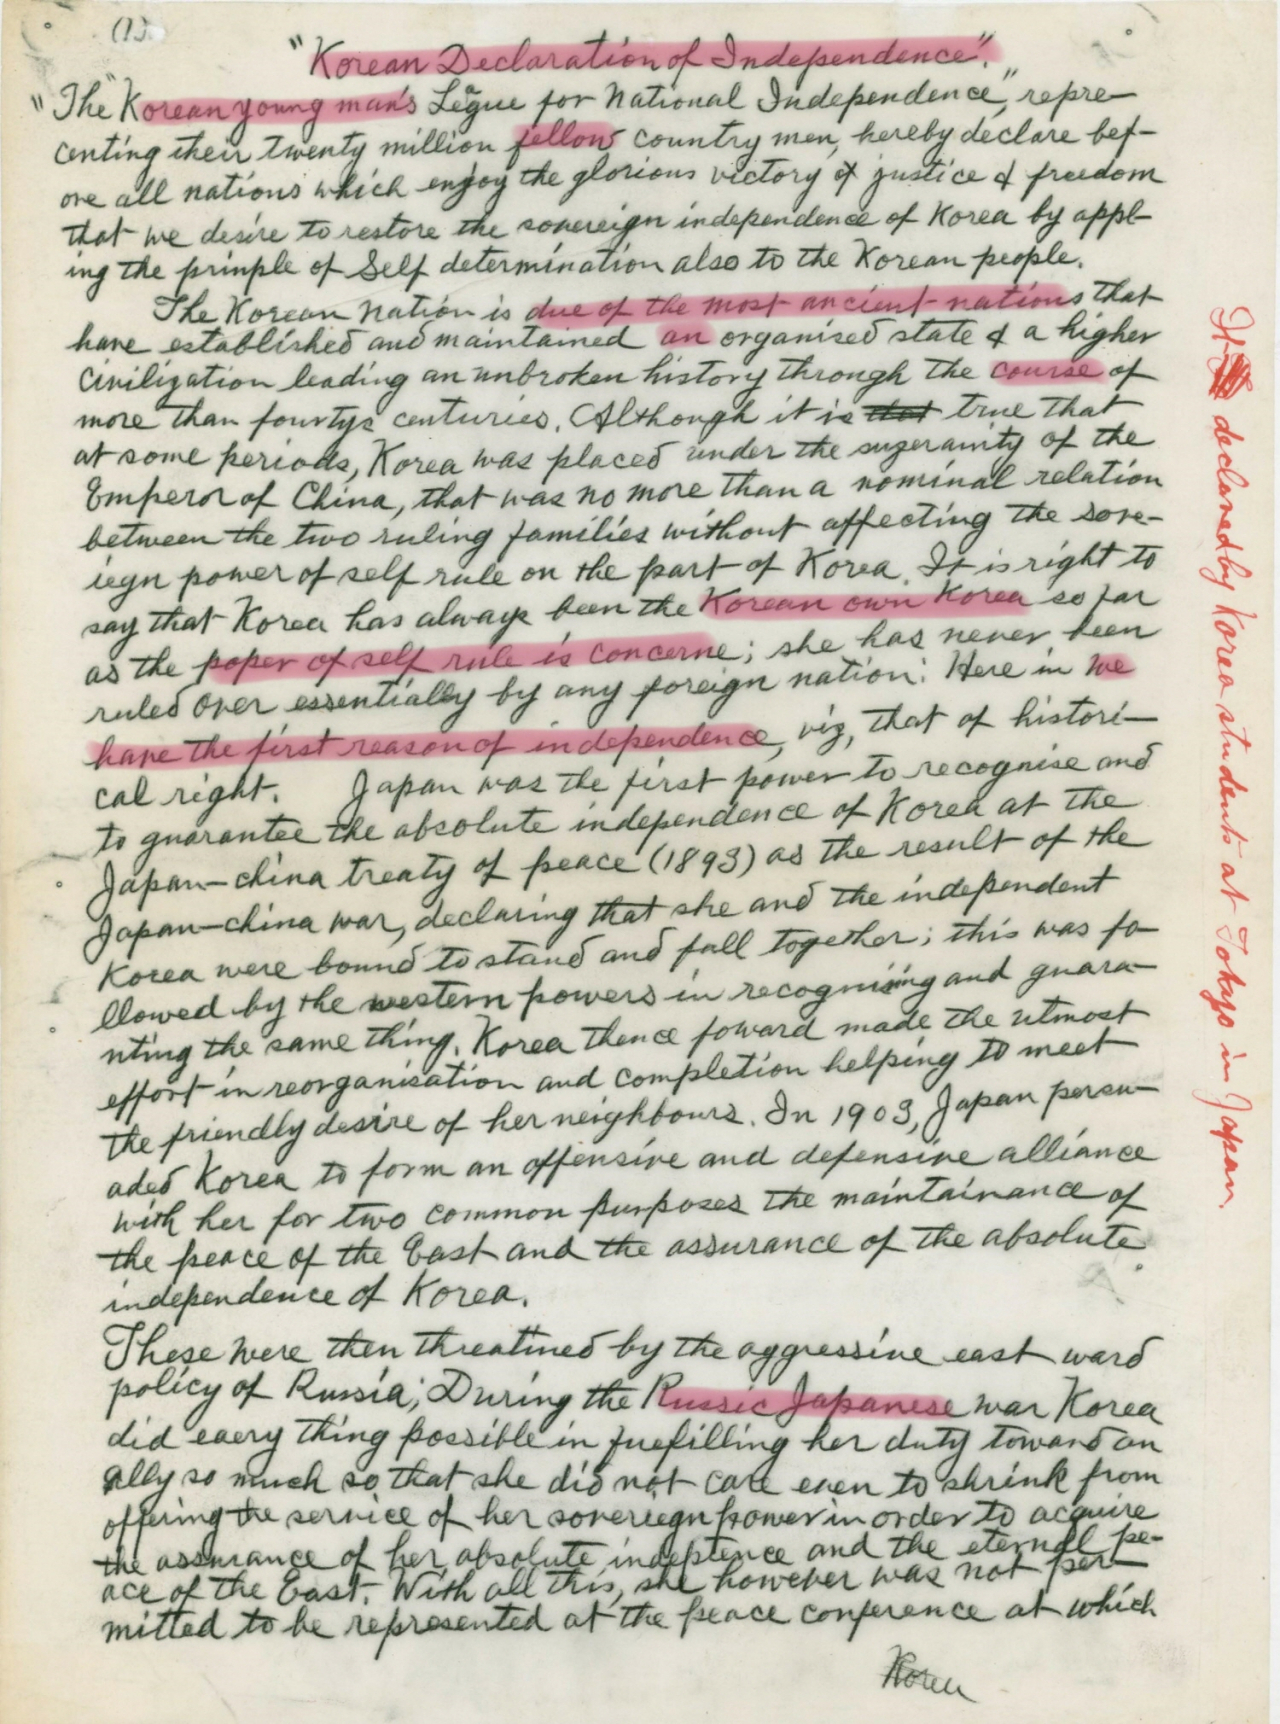 (1).
"Korean Declaration of Independence".
"The "Korean young man's Legue for National Independence", repre-
centing their twenty million fellow country men, hereby declare bef-
ore all nations which enjoy the glorious victory of justice & freedom
that we desire to restore the sovereign independence of Korea by appl-
ing the prinple of Self determination also to the Korean people.
The Korean Nation is due of the most ancient nations that
have established and maintained an organised state & a higher
civilization leading an unbroken history through the course of
more than fourtys centuries. Although it is that true that
at some periods, Korea was placed under the suzerainity of the
Emperor of China, that was no more than a nominal relation
between the two ruling families without affecting the sove-
iegn power of self rule on the part of Korea. It is right to
say that Korea has always been the Korean own Korea so far
as the poper of self rule is concerne; she has never been
ruled over essentially by any foreign nation: Here in we
have the first reason of independence, viz, that of histori-
cal right. Japan was the first power to recognise and
to guarantee the absolute independence of Korea at the
Japan-china treaty of peace (1893) as the result of the
Japan-china war, declaring that she and the independent
Korea were bound to stand and fall together; this was fo-
llowed by the western powers in recognising and guara-
nting the same thing. Korea thence foward made the utmost
effort in reorganisation and completion helping to meet
the friendly desire of her neighbours. In 1903, Japan persu-
aded Korea to form an offensive and defensive alliance
with her for two common purposes the maintainance of
the peace of the East and the assurance of the absolute
independence of Korea.
These were then threatined by the aggressive east ward
policy of Russia; During the Russic Japanese war Korea
did eaery thing possible in fuefilling her duty toward an
ally so much so that she did not care even to shrink from
offering the service of her sovereign power in order to acquire
the assurance of her absolute indeptence and the eternal pe-
ace of the East. With all this, she however was not per-
mitted to be represented at the peace conference at which
Korea
It declared by Korea students at Tokyo in Japan.